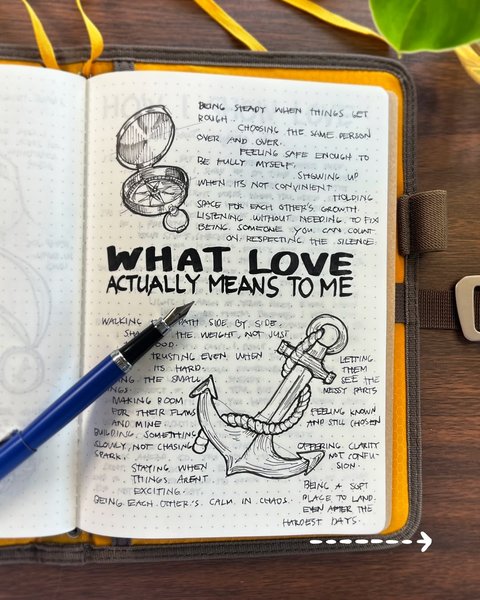 BEING STEADY WHEN THINGS GET
ROUGH.
CHOOSING THE SAME PERSON
OVER AND OVER.
FEELING SAFE ENOUGH TO
BE FULLY MYSELF.
SHOWING UP
WHEN ITS NOT CONVINIENT
HOLDING
SPACE FOR EACH OTHER'S GROWTH.
LISTENING WITHOUT NEEDING TO FIX
BEING SOMEONE YOU CAN COUNT
ON. RESPECTING THE SILENCE.
WHAT LOVE
ACTUALLY MEANS TO ME
WALKING PATH SIDE BY SIDE.
THE WEIGHT, NOT JUST
TRUSTING EVEN WHEN
ITS HARD.
THE SMALL
MAKING ROOM
FOR THEIR PLANS
AND MINE
BUILDING SOMETHING
SLOWLY, NOT CHASING
SPARK.
STAYING WHEN
THINGS ARENT
EXCITING.
BEING EACH OTHER'S CALM IN CHAOS.
LETTING
THEM
SEE THE
MESSY PARTS
FEELING KNOWN
AND STILL CHOSEN
OFFERING CLARITY
NOT CONFU-
SION.
BEING A SOFT
PLACE TO LAND.
EVEN AFTER THE
HARDEST DAYS.